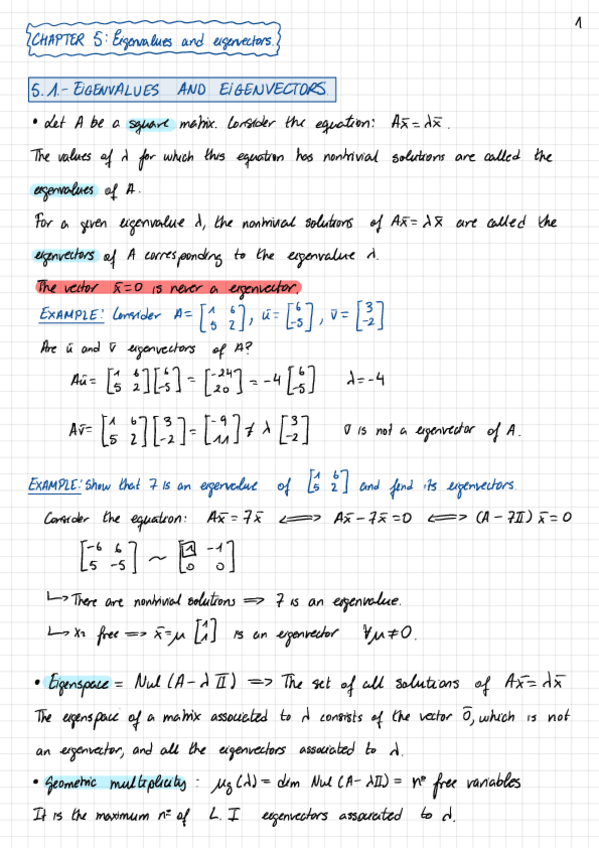 1
CHAPTER 5: Eigenvalues and eigenvectors.
5.1.- EIGENVALUES AND EIGENVECTORS.
• Let A be a square matrix. Consider the equation: Ax̄ = λx̄.
The values of λ for which this equation has nontrivial solutions are called the
eigenvalues of A.
For a given eigenvalue λ, the nontrivial solutions of Ax̄ = λx̄ are called the
eigenvectors of A corresponding to the eigenvalue λ.
The vector x̄=0 is never a eigenvector.
EXAMPLE: Consider A= [1 6; 5 2], ū= [6; -5], v̄= [3; -2]
Are ū and v̄ eigenvectors of A?
Aū= [1 6; 5 2] [6; -5] = [-24; 20] = -4 [6; -5] λ=-4
Av̄= [1 6; 5 2] [3; -2] = [-9; 11] ≠ λ [3; -2] v̄ is not a eigenvector of A.
EXAMPLE: Show that 7 is an eigenvalue of [1 6; 5 2] and find its eigenvectors.
Consider the equation: Ax̄ = 7x̄ ⟺ Ax̄ - 7x̄ = 0 ⟺ (A - 7𝕀) x̄ = 0
[-6 6; 5 -5] ~ [1 -1; 0 0]
↳ There are nontrivial solutions ⟹ 7 is an eigenvalue.
↳ x₂ free ⟹ x̄=μ [1; 1] is an eigenvector ∀μ≠0.
• Eigenspace = Nul (A - λ𝕀) ⟹ The set of all solutions of Ax̄ = λx̄
The eigenspace of a matrix associated to λ consists of the vector 0̄, which is not
an eigenvector, and all the eigenvectors associated to λ.
• Geometric multiplicity: μg(λ) = dim Nul (A - λ𝕀) = nº free variables
It is the maximum nº of L.I eigenvectors associated to λ.